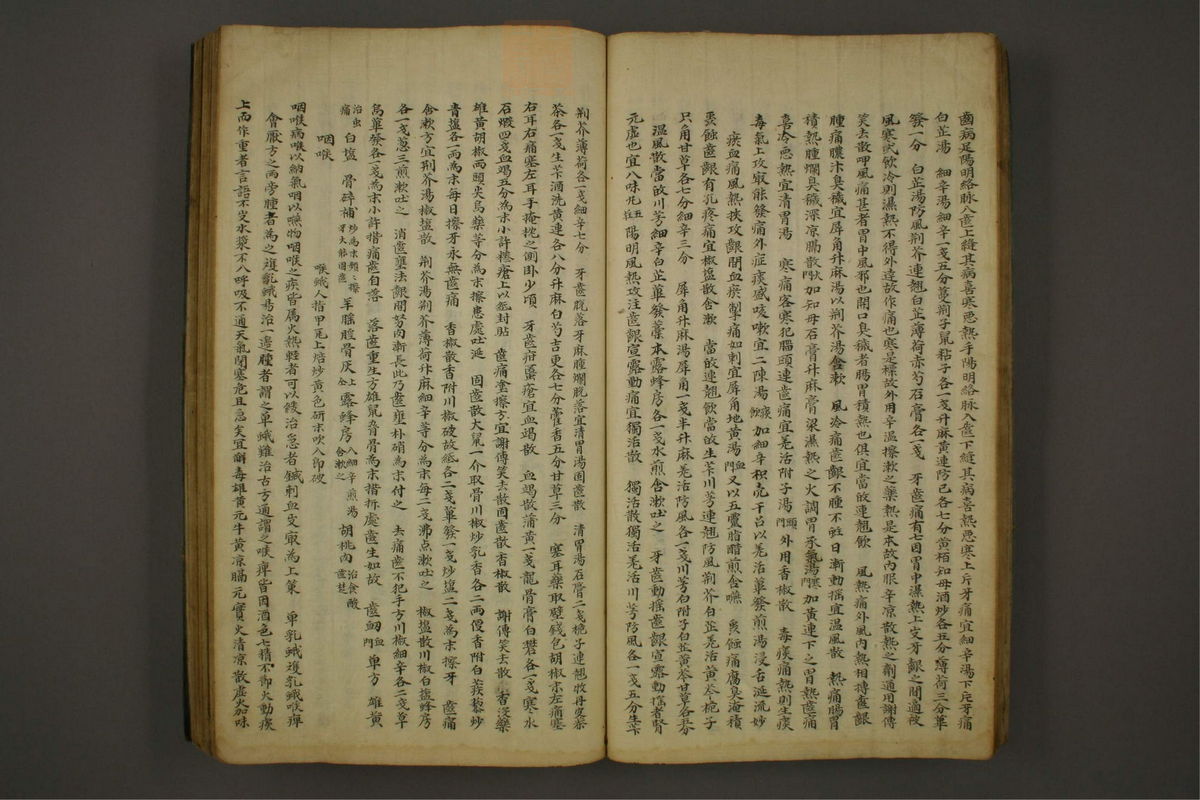 齒病足陽明絡脉入齒上縫其病喜寒惡熱手陽明絡脉入齒下縫其病喜熱惡寒上斤牙痛宜細辛湯下斤牙痛
白芷湯 細辛湯細辛一戔五分蔓荊子鼠粘子各一戔升麻黃連防己各七分黃栢知母酒炒各五分薄荷三分蓽
發一分 白芷湯防風荊芥連翹白芷薄荷赤芍石膏各一戔 牙齒痛有七因胃中濕熱上攻牙齦之間適被
風寒或飮冷則濕熱不得外達故作痛也寒是標故外用辛溫擦漱之藥熱是本故內服辛凉散熱之劑通用謝傳
笑去散呷風痛甚者胃中風邪也開口臭穢者腸胃積熱也俱宜當的連翹飮 風熱痛外風內熱相搏齒齦
腫痛膿汁臭穢宜犀角升麻湯以荊芥湯含漱 風冷痛齒齦不腫不蛀日漸動搖宜溫風散 熱痛腸胃
積熱腫爛臭穢深凉膈散加知母石膏升麻膏粱濕熱之火調胃承氣湯加黃連下之胃熱齒痛
喜冷惡熱宜清胃湯 寒痛客寒犯腦頭連齒痛宜羌活附子湯外用香椒散 毒痰痛熱則生痰
毒氣上攻寂能發痛外症痰盛咳嗽宜二陳湯加細辛枳壳干召以羌活蓽發煎湯浸舌涎流妙
瘀血痛風熱挾攻齦間血瘀掣痛如刺宜犀角地黃湯又以五靈脂醋煎含嚥 虫蝕痛腐臭淹積
虫蝕齒齦有孔疼痛宜椒塩散含漱 當的連翹飮當的生芐川芎連翹防風荊芥白芷羌活黃芩梔子
只角甘草各七分細辛三分 犀角升麻湯犀角一戔半升麻羌活防風各一戔川芎白附子白芷黃芩甘草各五分
溫風散當的川芎細辛白芷蓽發藁本露蜂房各一戔水煎含漱吐之 牙齒動搖齒齦宣露動搖者腎
元虛也宜八味元 陽明風熱攻注齒齦宣露動痛宜獨活散 獨活散獨活羌活川芎防風各一戔五分生芐
荊芥薄荷各一戔細辛七分 牙齒脫落牙麻腫爛脫落宜清胃湯固齒散 清胃湯石膏二戔梔子連翹牧丹皮条
芩各一戔生芐酒洗黃連各八分升麻白芍吉更各七分藿香五分甘草三分 塞耳藥取壁錢包胡椒末左痛塞
右耳右痛塞左耳手掩枕之側卧少頃 牙齒疳䘌瘡宜血竭散 血竭散蒲黃一戔龍骨膏白礬各一戔寒水
石煅四戔血竭五分為末小許糝瘡上以紙封貼 齒痛塗擦方宜謝傳笑去散固齒散香椒散 謝傳笑去散
雄黃胡椒兩頭尖烏藥等分為末擦患處吐涎 固齒散大鼠一介取骨川椒炒乳香各二兩便香附白蒺藜炒
青塩各一兩為末每日擦牙永無齒痛 香椒散香附川椒破故紙各二戔蓽發一戔炒塩二戔為末擦牙 齒痛
含漱方宜荊芥湯椒塩散 荊芥湯荊芥薄荷升麻細辛等分為末每二戔沸点漱吐之 椒塩散川椒白塩蜂房
各一戔葱三煎漱吐之 消齒壅法齦間努肉漸長此乃齒壅朴硝為末付之 去痛齒不犯手方川椒細辛各二戔草
烏蓽發各一戔為末小許揩痛齒自落 落齒重生方雄鼠脊骨為末揩折處齒生如故 齒衂血門 單方 雄黃
治虫痛 白塩 骨碎補 羊脛骨灰 仝上 露蜂房 入細辛煎湯含漱之 胡桃肉 治食酸齒楚
咽喉 喉蛾人指甲瓦上焙炒黃色硏末吹入卽破
咽喉病喉以納氣咽以嚥物咽喉之疾皆属火熱輕者可以緩治急者鍼刺血攻寂為上策 單乳蛾双乳蛾喉痺
會厭之兩旁腫者為之双乳蛾易治一邊腫者謂之單蛾難治古方通謂之喉痺皆因酒色七情不卽火動痰
上而作重者言語不攻水漿不入呼吸不通天氣閉塞危且急矣宜解毒雄黃元牛黃凉膈元實火清凉散虛火加味